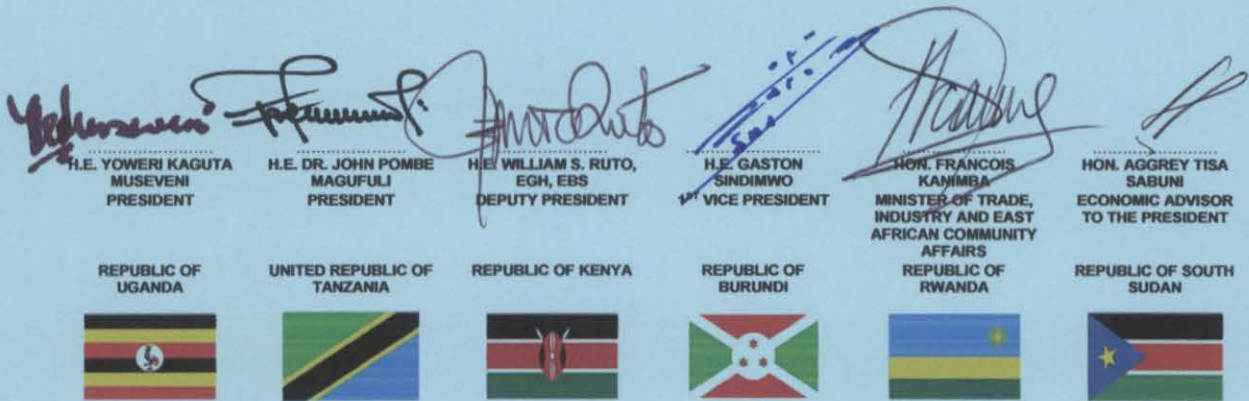 H.E. YOWERI KAGUTA
MUSEVENI
PRESIDENT
REPUBLIC OF
UGANDA
H.E. DR. JOHN POMBE
MAGUFULI
PRESIDENT
UNITED REPUBLIC OF
TANZANIA
H.E. WILLIAM S. RUTO,
EGH, EBS
DEPUTY PRESIDENT
REPUBLIC OF KENYA
H.E. GASTON
SINDIMWO
1ST VICE PRESIDENT
REPUBLIC OF
BURUNDI
HON. FRANCOIS
KANIMBA
MINISTER OF TRADE,
INDUSTRY AND EAST
AFRICAN COMMUNITY
AFFAIRS
REPUBLIC OF
RWANDA
HON. AGGREY TISA
SABUNI
ECONOMIC ADVISOR
TO THE PRESIDENT
REPUBLIC OF SOUTH
SUDAN